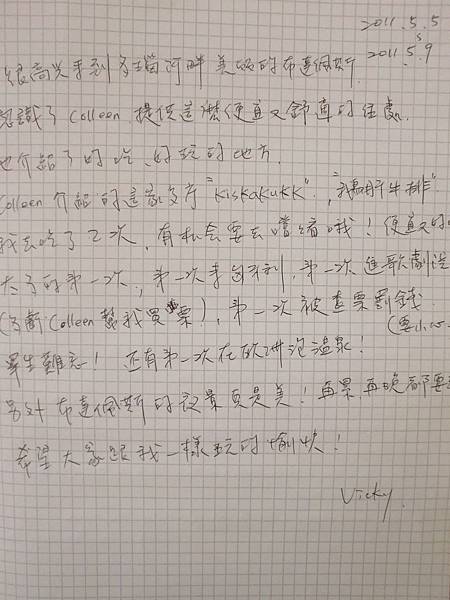 2011.5.5
很高興來到多瑙河畔美麗的布達佩斯 2011.5.9
認識了 Colleen 提供這麼便宜又舒適的住處.
也介紹了好吃、好玩的地方.
Colleen 介紹的這家餐廳 "KISKAKUKK",
我去吃了2次, 有機會要去嚐嚐哦! 便宜又好
太多的第一次, 第一次來匈牙利, 第一次進歌劇院
Colleen 幫我買票), 第一次被查票罰錢
(要小心
畢生難忘! 還有第一次在歐洲泡溫泉!
另外布達佩斯的夜景真是美! 再累, 再晚都要
希望大家跟我一樣玩的愉快!
Vicky.